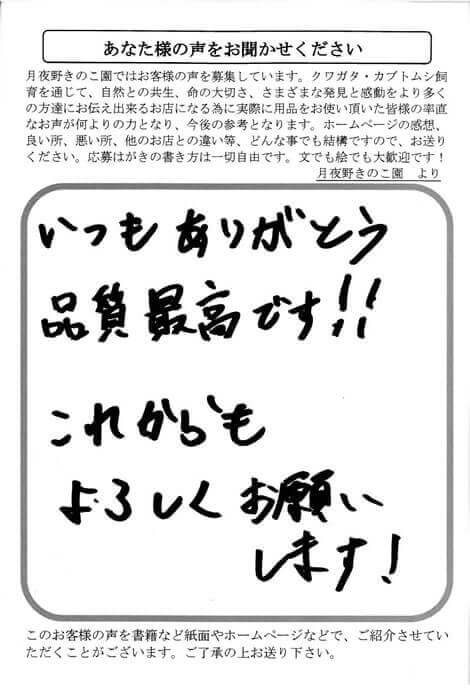 あなた様の声をお聞かせください
月夜野きのこ園ではお客様の声を募集しています。クワガタ・カブトムシ飼
育を通じて、自然との共生、命の大切さ、さまざまな発見と感動をより多く
の方達にお伝え出来るお店になる為に実際に用品をお使い頂いた皆様の率直
なお声が何よりの力となり、今後の参考となります。ホームページの感想、
良い所、悪い所、他のお店との違い等、どんな事でも結構ですので、お送り
ください。応募はがきの書き方は一切自由です。文でも絵でも大歓迎です！
月夜野きのこ園　より
いつもありがとう
品質最高です!!
これからも
よろしくお願い
します!
このお客様の声を書籍など紙面やホームページなどで、ご紹介させてい
ただくことがございます。ご了承の上お送り下さい。